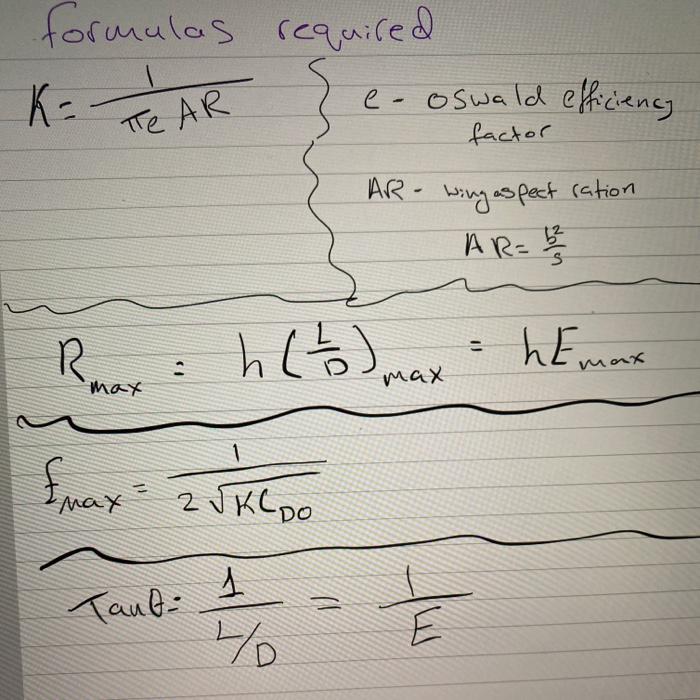 formulas required
K = 1 / πe AR
e - oswald efficiency
factor
AR - wing aspect ration
AR = b² / s
R max = h (L/D) max = hE max
E max = 1 / 2 √KC DO
Tanθ = 1 / L/D = 1 / E